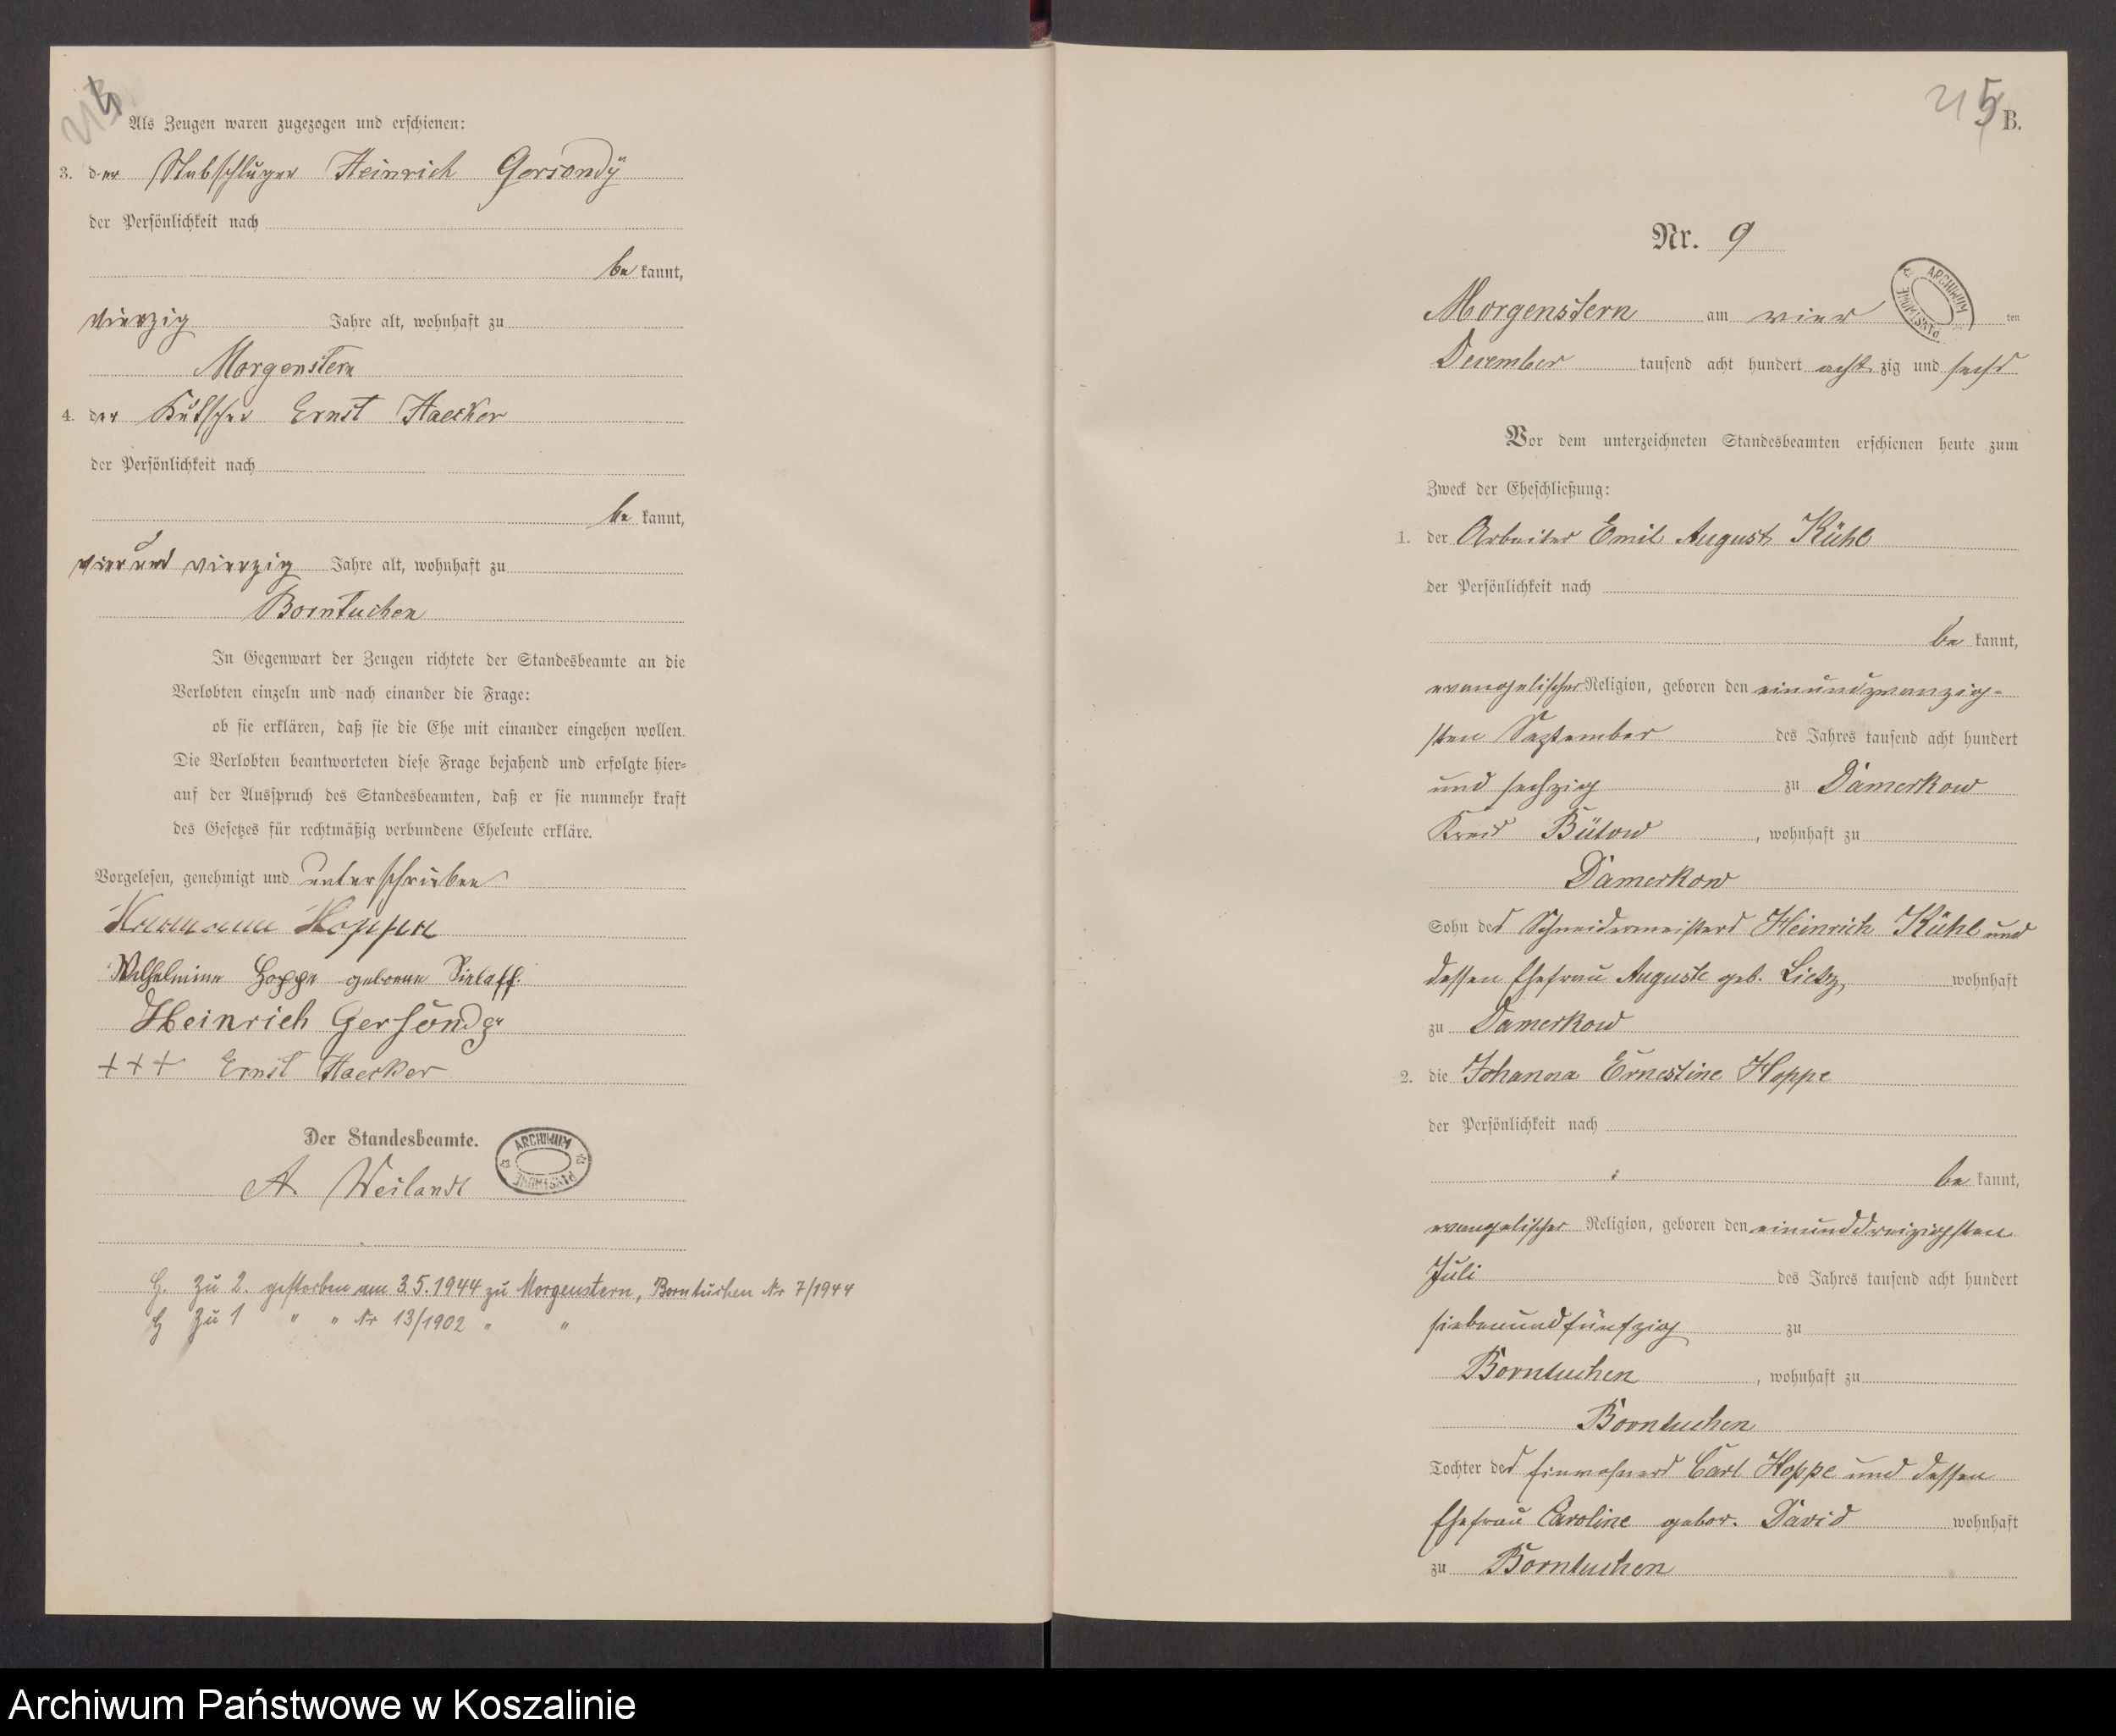 4
Als Zeugen waren zugezogen und erschienen:
3. der Stabschläger Heinrich Gersondÿ
der Persönlichkeit nach
be kannt,
vierzig Jahre alt, wohnhaft zu
Morgenstern
4. der Kutscher Ernst Haecker
der Persönlichkeit nach
be kannt,
vier und vierzig Jahre alt, wohnhaft zu
Borntuchen
In Gegenwart der Zeugen richtete der Standesbeamte an die
Verlobten einzeln und nach einander die Frage:
ob sie erklären, daß sie die Ehe mit einander eingehen wollen.
Die Verlobten beantworteten diese Frage bejahend und erfolgte hier-
auf der Ausspruch des Standesbeamten, daß er sie nunmehr kraft
des Gesetzes für rechtmäßig verbundene Eheleute erkläre.
Vorgelesen, genehmigt und unterschrieben
Hermann Hoppe
Wilhelmine Hoppe geborene Zielaff.
Heinrich Gersondy
+++ Ernst Haecker
Der Standesbeamte.
ARCHIWUM PAŃSTWOWE
A. Weilandt
G. Zu 2. gestorben am 3.5.1944 zu Morgenstern, Borntuchen Nr 7/1944
G Zu 1 " " Nr 13/1902 " "
5 B.
Nr. 9
ARCHIWUM PAŃSTWOWE
Morgenstern am vier ten
Dezember tausend acht hundert acht zig und sechs
Vor dem unterzeichneten Standesbeamten erschienen heute zum
Zweck der Eheschließung:
1. der Arbeiter Emil August Kühl
der Persönlichkeit nach
be kannt,
evangelischer Religion, geboren den einundzwanzig-
sten September des Jahres tausend acht hundert
und sechzig zu Damerkow
Kreis Bütow, wohnhaft zu
Damerkow
Sohn des Schneidermeisters Heinrich Kühl und
dessen Ehefrau Auguste geb. Lietz, wohnhaft
zu Damerkow
2. die Johanna Ernestine Hoppe
der Persönlichkeit nach
be kannt,
evangelischer Religion, geboren den einunddreizigsten
Juli des Jahres tausend acht hundert
siebenundfünfzig zu
Borntuchen, wohnhaft zu
Borntuchen
Tochter des Einwohners Carl Hoppe und dessen
Ehefrau Caroline gebor. David wohnhaft
zu Borntuchen
Archiwum Państwowe w Koszalinie